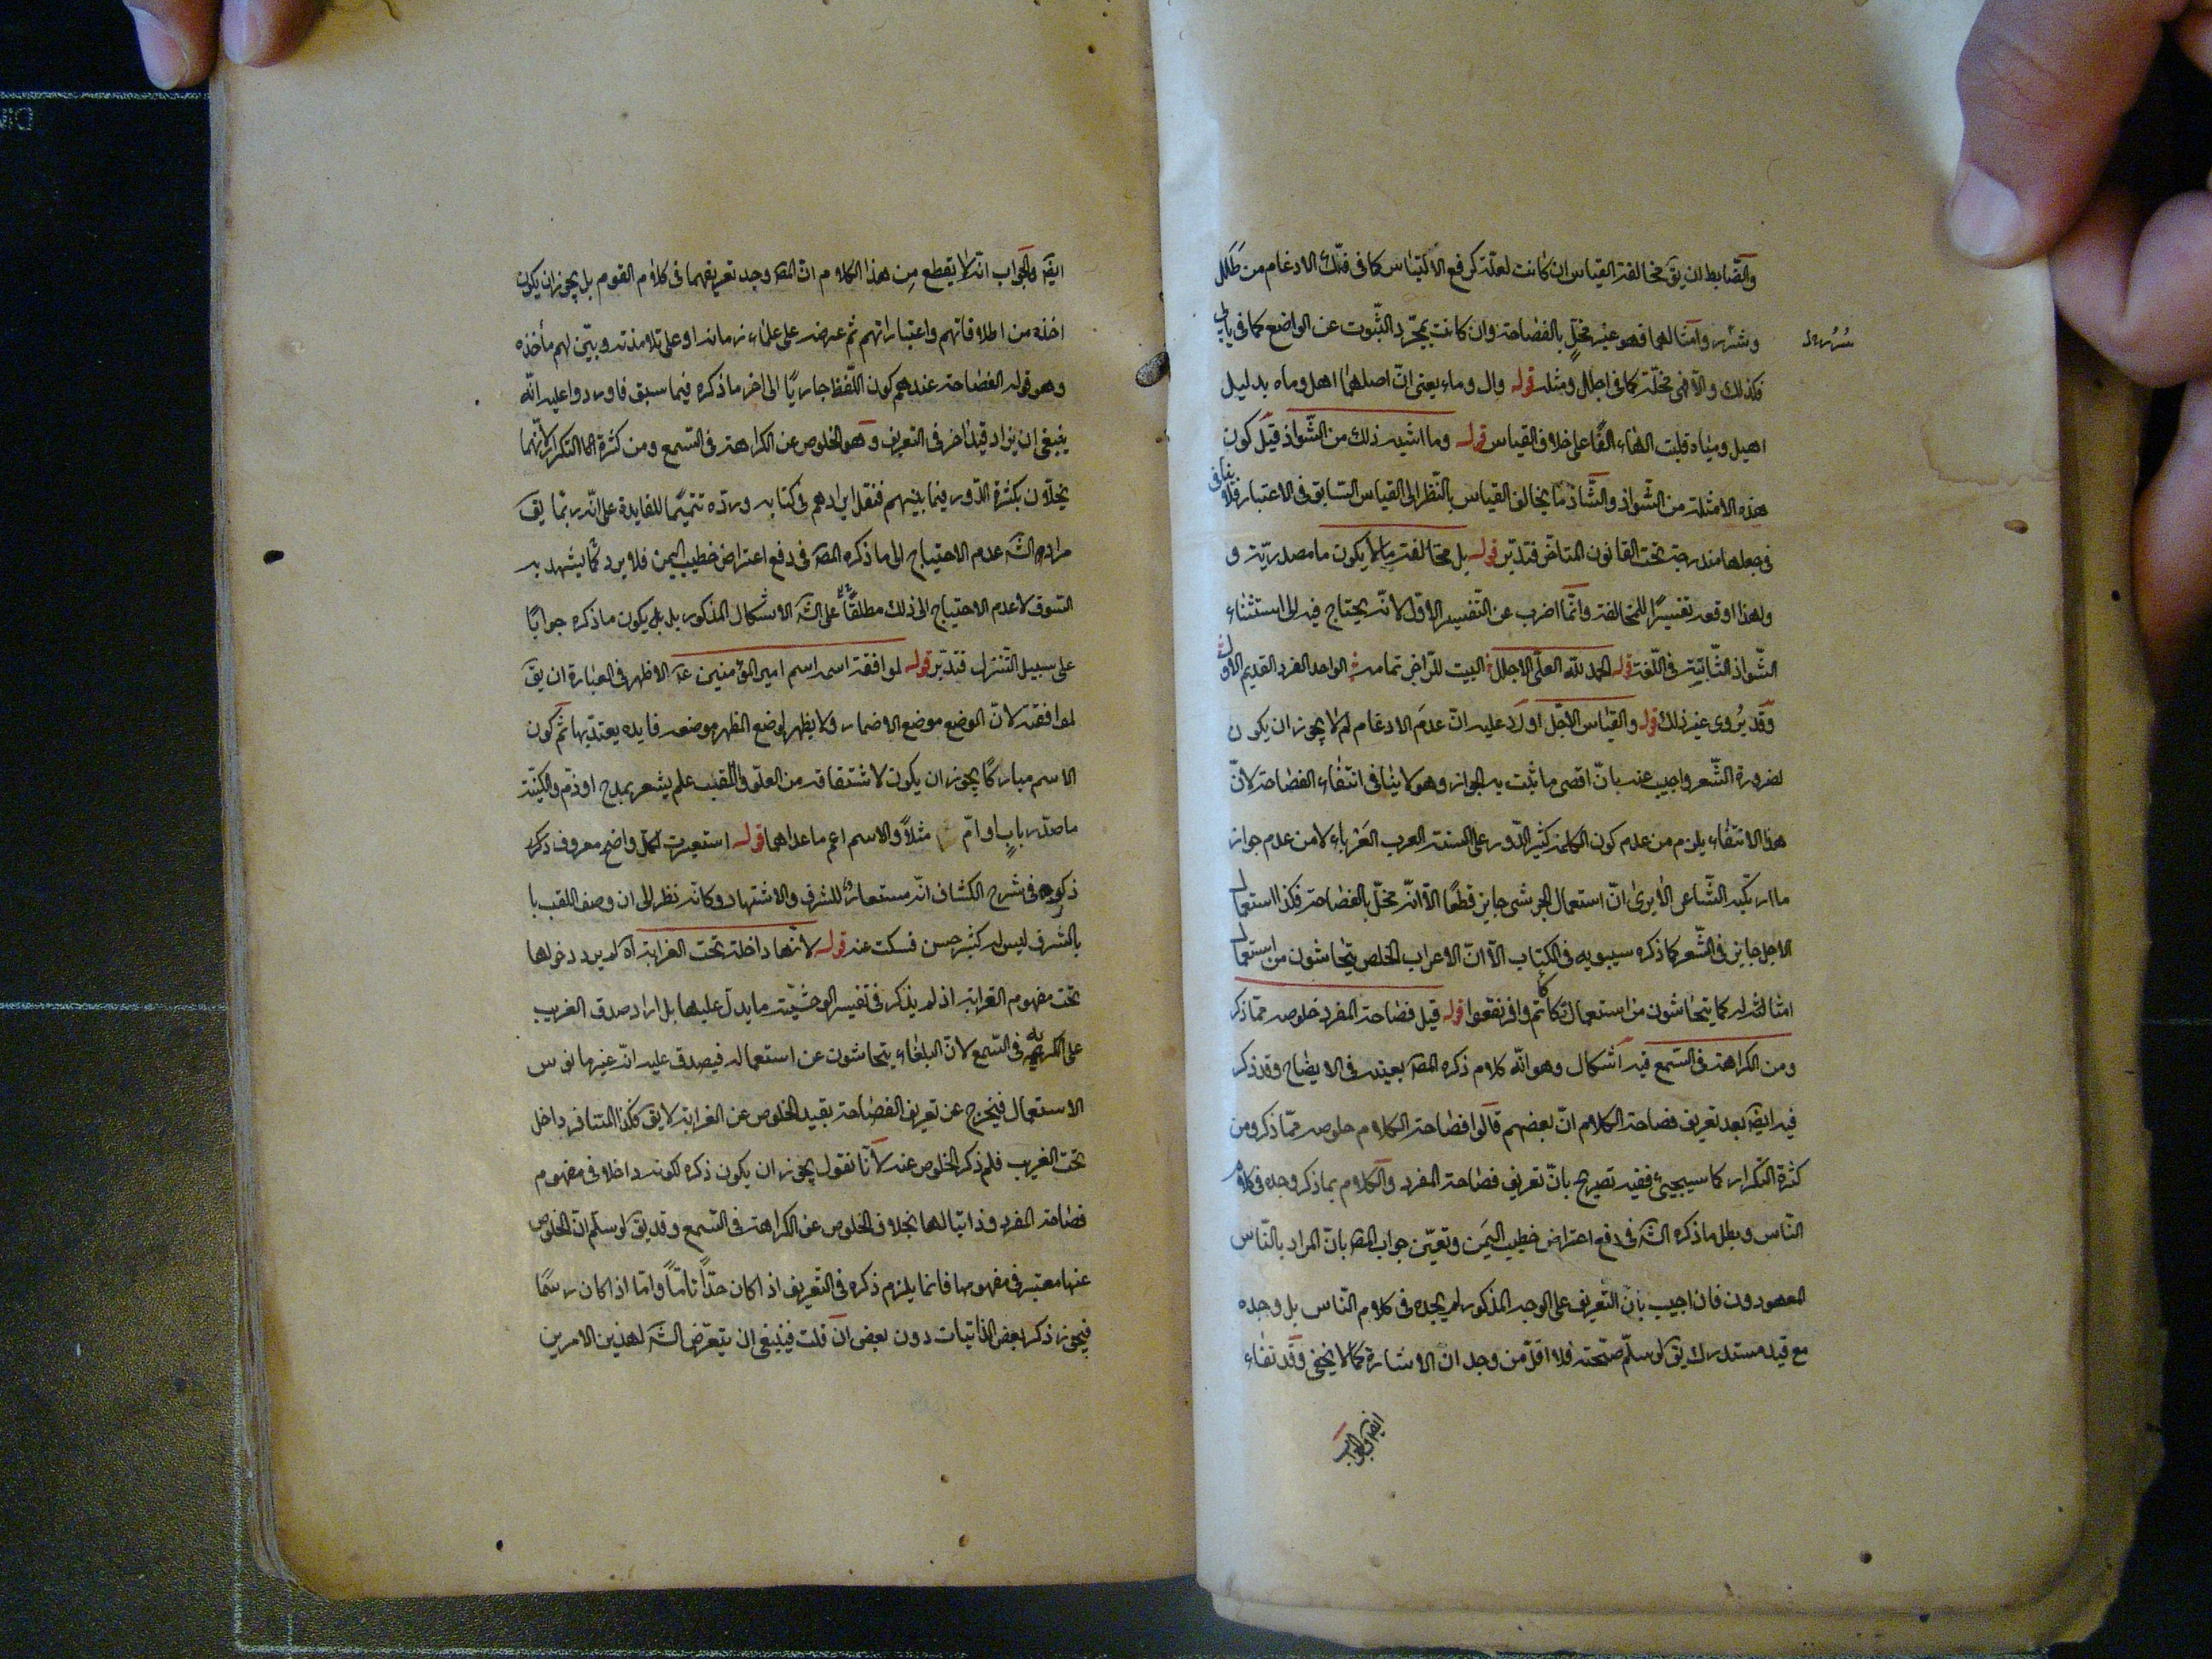 والضابط ان يق مخالفة القياس ان كانت لعلة كرفع الالتباس كما فى فك الادغام من طلل
وشرر وامثالهما فهو غير مخل بالفصاحة وان كانت بمجرد الثبوت عن الواضع كما فى يابى
سرر بدل
فكذلك والا فهى مخلة كما فى اجلل ومثله قوله وال وماء يعنى ان اصلهما اهل وماه بدليل
اهيل ومياه قلبت الهاء الفا على خلاف القياس قوله وما اشبه ذلك من الشواذ قيل كون
هذه الامثلة من الشواذ والشاذ ما يخالف القياس بالنظر الى القياس السابق فى الاعتبار فلا ينافى
فى جعلها مندرجة تحت القانون المتاخر فتدبر قوله بل مخالفة ما لا يكون ما مصدرية و
ولهذا اوقعه تفسيرا للمخالفة وانما اضرب عن التفسير الاول لانه يحتاج فيه الى استثناء
الشواذ الثابتة فى اللغة قوله الحمد لله العلى الاجلل البيت للراجز تمامه الواحد الفرد القديم الاول
وقد يروى غير ذلك قوله والقياس الاجل اورد عليه ان عدم الادغام لم لا يجوز ان يكون
لضرورة الشعر واجيب عنه بان اقصى ما ثبت به الجواز وهو لا ينافى انتفاء الفصاحة لان
هذا الانتفاء يلزم من عدم كون الكلمة كثير الدور على السنة العرب العرباء لا من عدم جواز
ما ارتكبه الشاعر الا يرى ان استعمال الجرشى جايز قطعا الا انه مخل بالفصاحة فكذا استعمال
الاجلل جايز فى الشعر كما ذكره سيبويه فى الكتاب الا ان الاعراب الخلص يتحاشون من استعمال
امثاله كما يتحاشون من استعمال تكاكاتم وافرنقعوا قوله قيل فصاحة المفرد خلوصه مما ذكر
ومن الكراهة فى السمع فيه اشكال وهو انه كلام ذكره المص بعينه فى الايضاح وقد ذكر
فيه ايضا بعد تعريف فصاحة الكلام ان بعضهم قالوا فصاحة الكلام خلوصه مما ذكر ومن
كثرة التكرار كما سيجيئ ففيه تصريح بان تعريف فصاحة المفرد والكلام بما ذكر وجده فى كلام
الناس وبطل ما ذكره الش فى دفع اعتراض خطيب اليمن وتعين جواب المص بان المراد بالناس
المعهودون فان اجيب بان التعريف على الوجه المذكور لم يجده فى كلام الناس بل وجده
مع قيد مستدرك يق لو سلم صحته فلا اقل من وجدان الاشارة كما لا يخفى وقد نفاه
ايضا والجواب
ايضا والجواب انه لا يقطع من هذا الكلام ان المص وجد تعريفهما فى كلام القوم بل يجوز ان يكون
اخذه من اطلاقاتهم واعتباراتهم ثم عرضه على علماء زمانه او على تلامذته وبين لهم مأخذه
وهو قوله الفصاحة عندهم كون اللفظ جاريا الى اخر ما ذكره فيما سبق فاوردوا عليه انه
ينبغى ان يزاد قيد اخر فى التعريف وهو الخلوص عن الكراهة فى السمع ومن كثرة التكرار لانهما
يخلان بكثرة الدور فيما بينهم فنقل ايرادهم فى كتابه ورده تتميما للفايدة على انه ربما يق
مراد الش عدم الاحتياج الى ما ذكره المص فى دفع اعتراض خطيب اليمن فلا يرد كما يشهد به
السوق لا عدم الاحتياج الى ذلك مطلقا على الش الاشكال المذكور بل يكون ما ذكره جوابا
على سبيل التنزل فتدبر قوله لموافقة اسمه اسم امير المؤمنين ع الاظهر فى العبارة ان يق
لموافقته لان الموضع موضع الاضمار ولا يظهر لوضع المظهر موضعه فايده يعتد بها ثم كون
الاسم مباركا يجوز ان يكون لاشتقاقه من العلو واللقب علم يشعر بمدح او ذم والكنية
ما صدر باب او ام مثلا والاسم اعم ما عداهما قوله استعيرت لكل واضح معروف ذكر
ذكره فى شرح الكشاف انه مستعار للشرف والاشتهار وكانه نظر الى ان وصف اللقب با
بالشرف ليس له كثير حسن فسكت عنه قوله لانها داخلة تحت الغرابة اه لم يرد دخولها
تحت مفهوم الغرابة اذ لم يذكر فى تفسير الوحشية ما يدل عليها بل اراد صدق الغريب
على الكريه فى السمع لان البلغاء يتحاشون عن استعماله فيصدق عليه انه غير مانوس
الاستعمال فيخرج عن تعريف الفصاحة بقيد الخلوص عن الغرابة لا يق فكذا المتنافر داخل
تحت الغريب فلم ذكر الخلوص عنه لانا نقول يجوز ان يكون ذكره لكونه داخلا فى مفهوم
فصاحة المفرد وذاتيا لها بخلاف الخلوص عن الكراهة فى السمع وقد يق لو سلم ان الخلوص
عنها معتبر فى مفهومها فانما يلزم ذكره فى التعريف اذا كان حدا تاما واما اذا كان رسما
فيجوز ذكر بعض الذاتيات دون بعض ان قلت فينبغى ان يتعرض الش لهذين الامرين